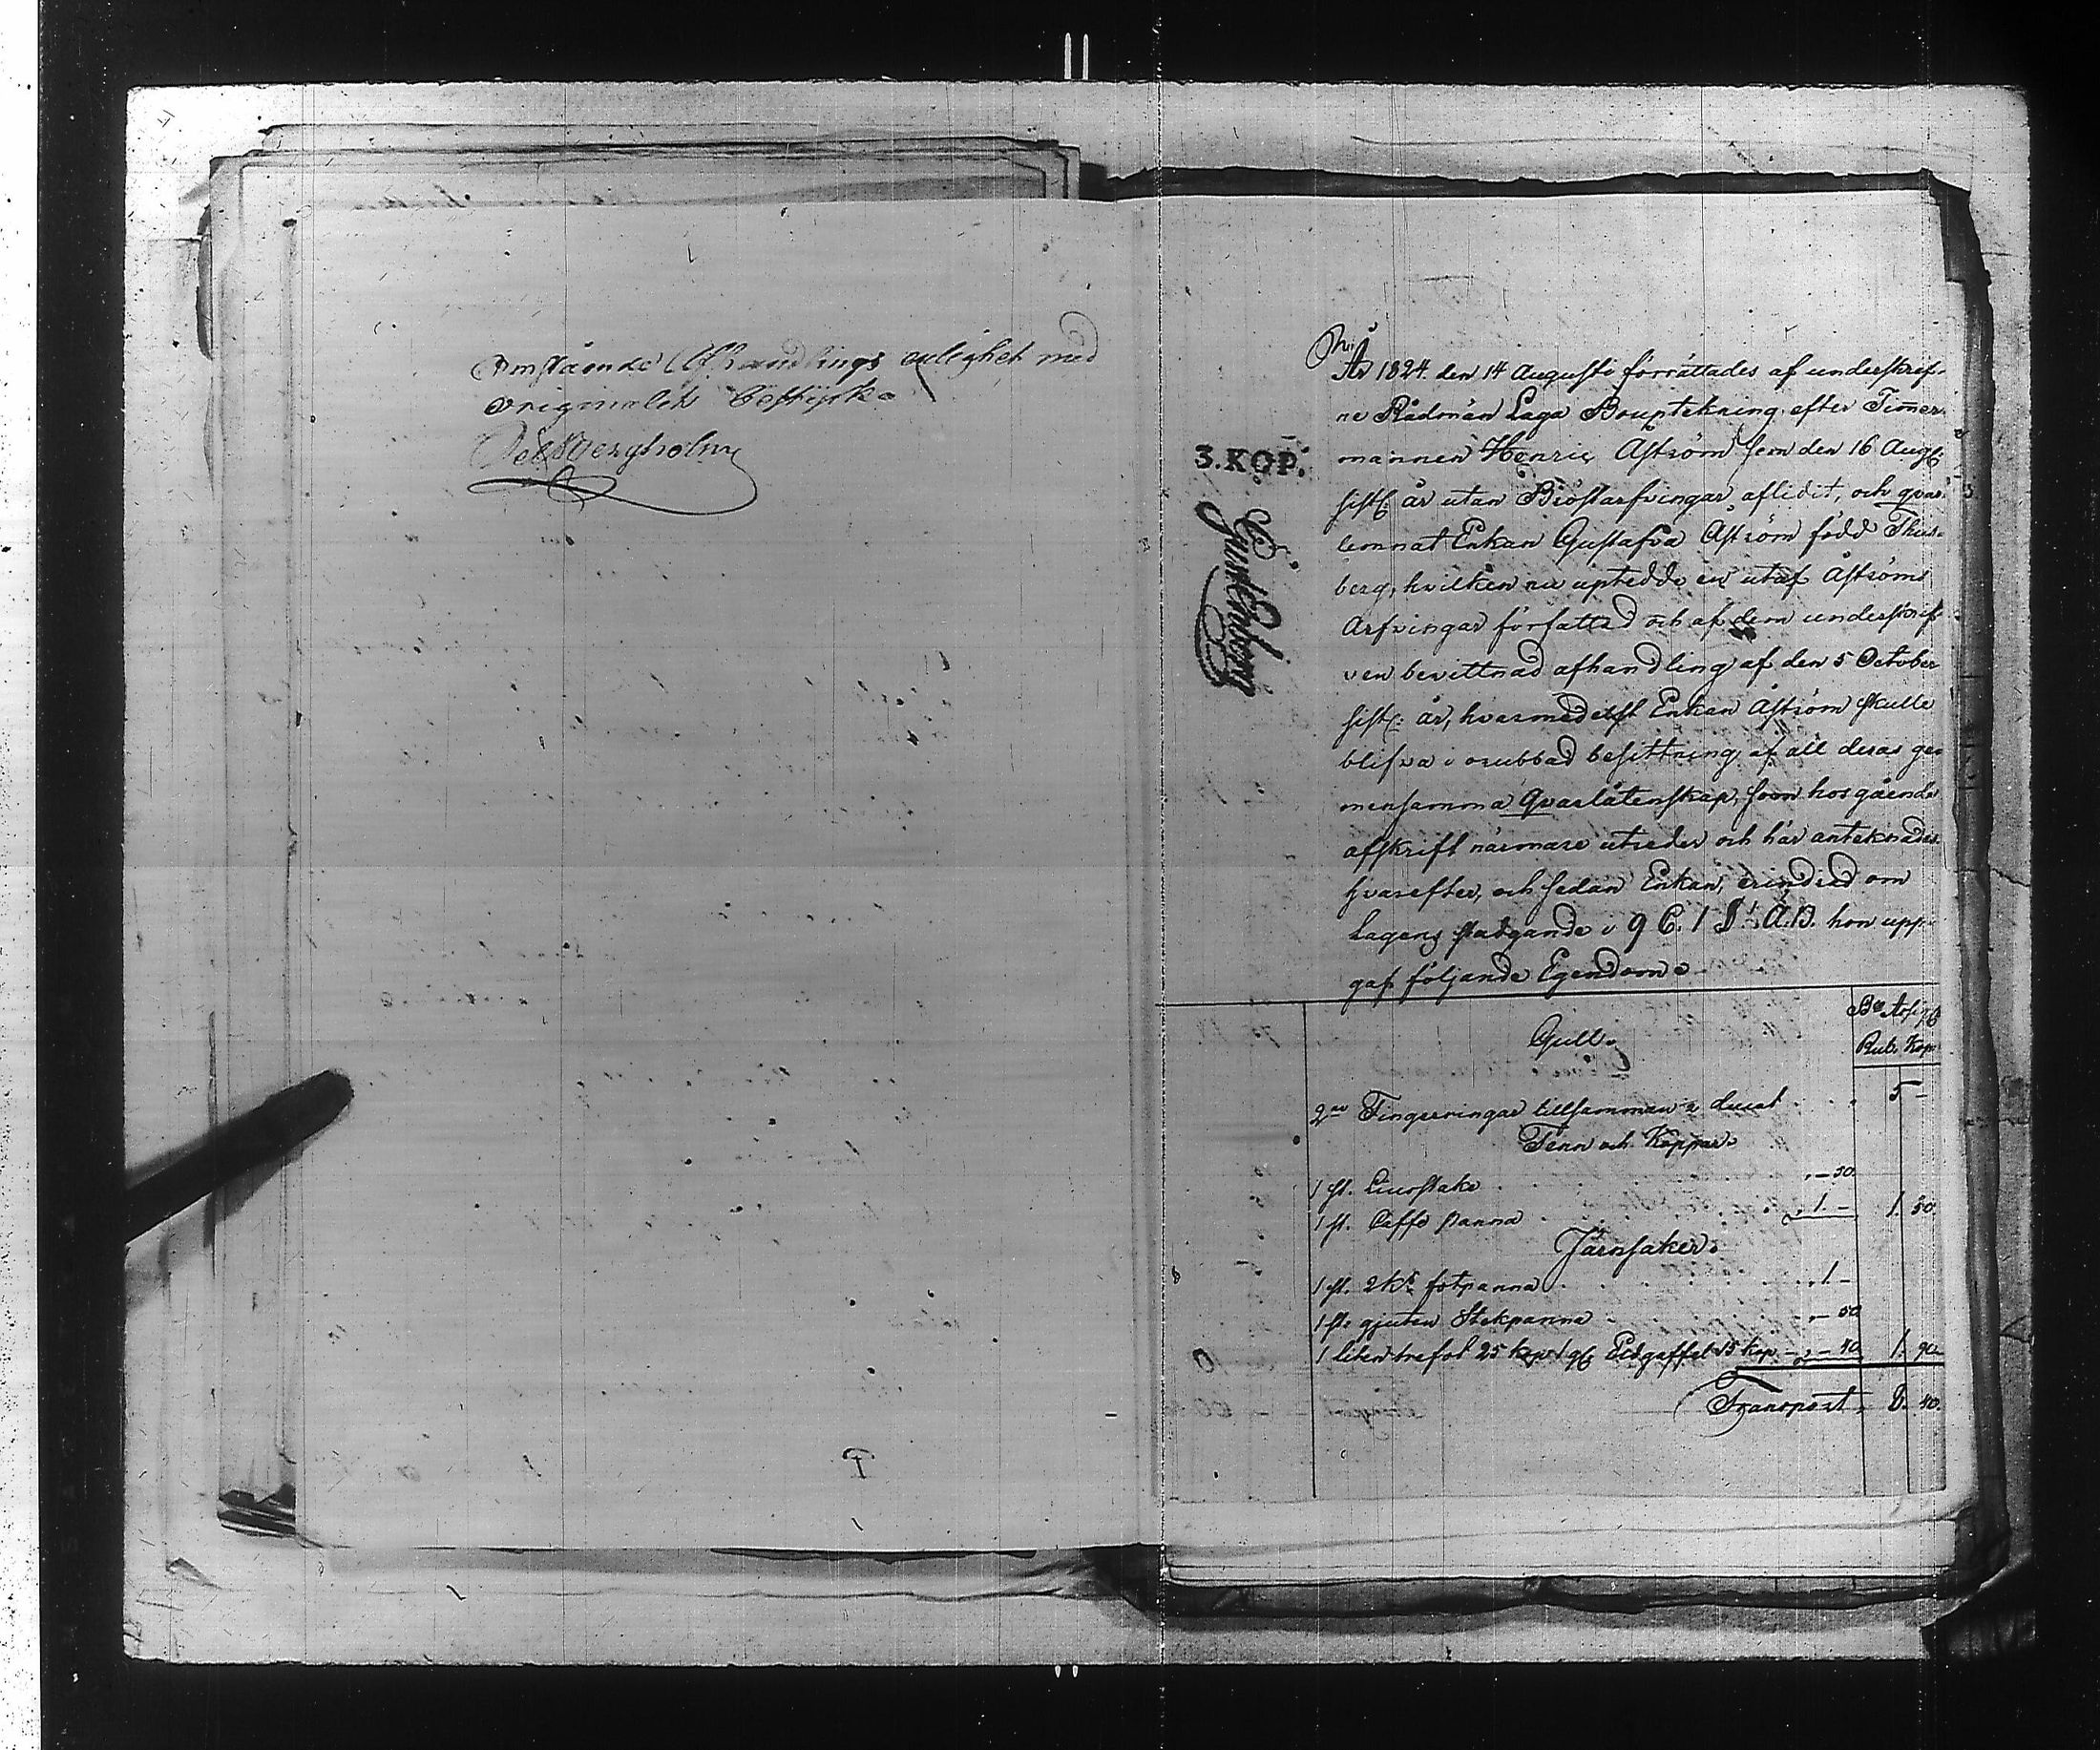 Omstående Afhandlings enlighet med
originalet bestyrka
Pehr Bergholm
3. KOP.
Gust Enberg
År 1824 den 14 Augusti förrättades af underskref-
ne Rådmän Laga Bouptekning efter Timmer-
mannen Henric Åström som den 16 Aug:
sistl: år utan Bröstarfvingar aflidit, och qvar-
lemnat Enkan Gustafva Åström född Thus-
berg, hvilken nu uptedde en utaf Åströms
Arfvingar författad och af dem underskrif-
ven bevittnad afhandling af den 5 October
sistl: år, hvarmedelst Enkan Åström skulle
blifva i orubbad besittning af all deras ge-
mensamma Qvarlåtenskap, som hosgående
afskrift närmare utreder och här anteknades.
hvarefter, och sedan Enkan, erindrad om
Lagens stadgande i 9 C. 1 §. Ä.B. hon upp-
gaf följande Egendom:
Bco Assign:
Rub. Kop.
Gull.
2ne Fingerringar tillsamman ducat . . . 5 -
Tenn och Koppar.
1 st. Liusstake . . . - 50.
1 st. Caffe panna . . 1. - 1. 50.
Järnsaker.
1 st. 2 Ks fotpanna . . . 1 -
1 st. gjuten Stekpanna - - 50
1 liten trefot 25 kop 1 Eldgaffel 15 kop - - 40 1. 90.
Transport. 8. 40.